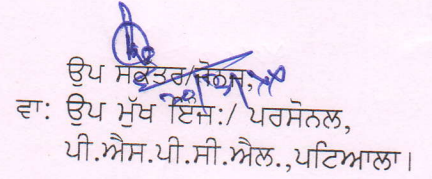 ਉਪ ਸਕੱਤਰ/ਜੋਨਜ,
ਵਾ: ਉਪ ਮੁੱਖ ਇੰਜ:/ ਪਰਸੋਨਲ,
ਪੀ.ਐਸ.ਪੀ.ਸੀ.ਐਲ.,ਪਟਿਆਲਾ।